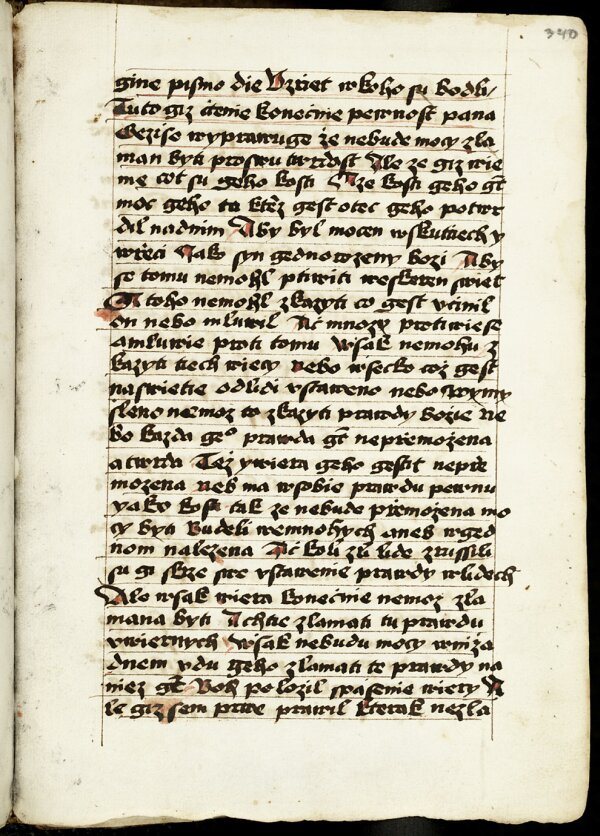 340
gine pismo die Vzriet wkoho su bodli/
Tuto giz čtenie konečnie pewnost pana
Gezise wyprawuge že nebude mocy zla
man byti prostru twrdost Ale ze giz wie
me cot su geho kosti A ze kosti geho gt
moc geho ta ktež gest otec geho potwr
dil nadnim Aby byl mocen wskutciech y
wřeči Jako syn gednorozeny bozi Aby
se tomu nemohl ptiwiti weskeren swiet
A toho nemohl zkazyti co gest včinil
on nebo mluwil Ač mnozy protiwiese
amluwie proti tomu wsak nemohu z
kazyti tiech wiecy nebo wsecko coz gest
naswietie odlidi vstaweno nebo wymy
sleno nemoz to zkazyti prawdy bozie ne
bo kazda geo prawda gt nepřemožena
atwrda Tež ywiera geho gestit nepře
možena neb ma wsobie prawdu pewnu
yako kost tak ze nebude přemožena mo
cy byti Budeli wemnohych aneb wged
nom nalezena Ač koli zli lide zrussili
su gi skrze swe vstawenie prawdy wlidech
Ale wsak wiera konečnie nemoz zla
mana byti Achtie zlamati tu prawdu
vwiernych wsak nebudu mocy wniža
dnem vdu geho zlamati te prawdy na
niez gt Boh polozil spasenie wiery A
le giz sem prwe prawil kterak nezla